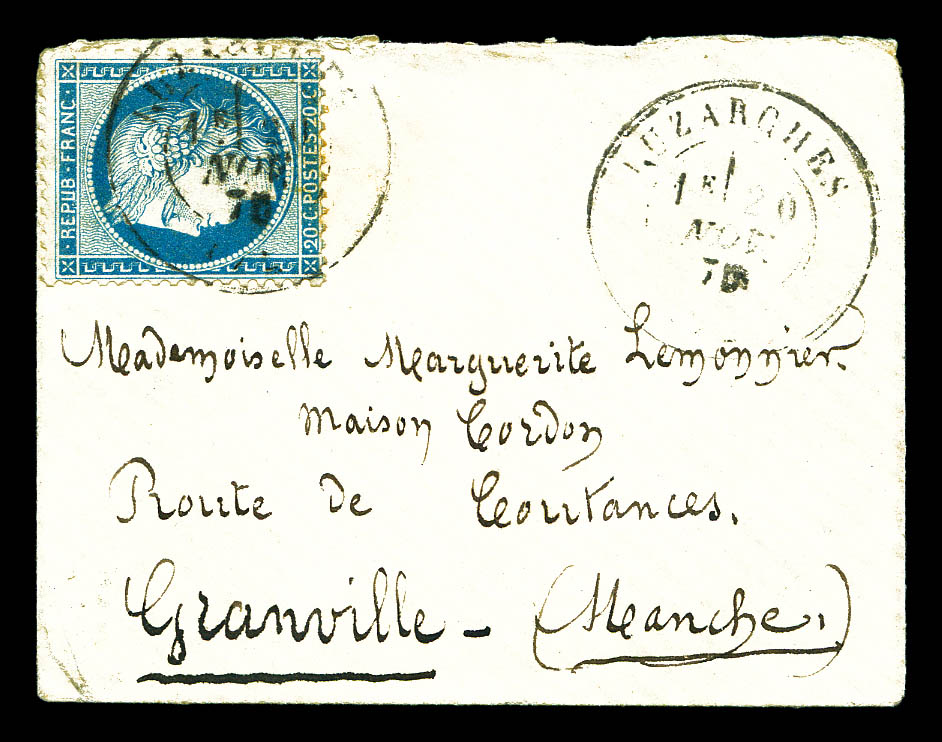 REPUB · FRANC ·
20 · C · POSTES · 20 · C ·
NOV.
LUZARCHES
1E/ 20
NOV.
Mademoiselle Marguerite Lemonnier.
Maison Cordon
Route de Coutances.
Granville – (Manche.)